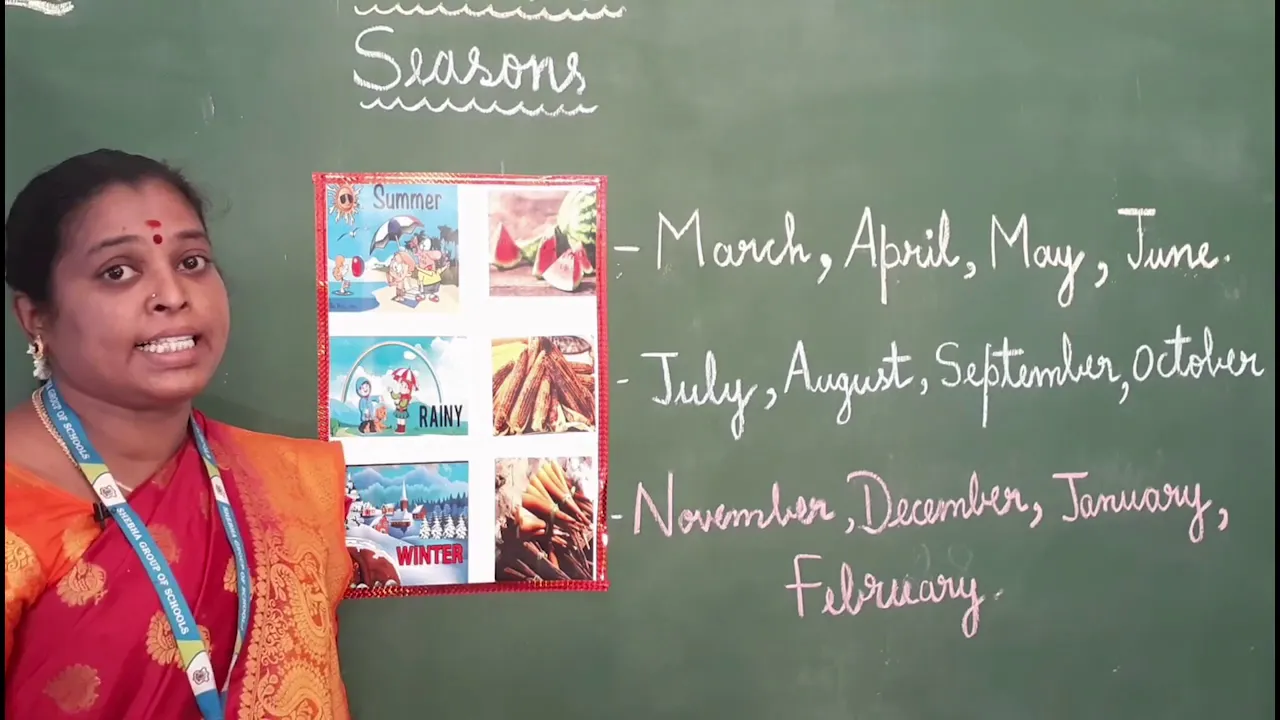 Seasons
Summer
- March, April, May, June.
RAINY
- July, August, September, October
WINTER
- November, December, January,
February.
SHEBHA GROUP OF SCHOOLS
GROUP OF SCHOOLS